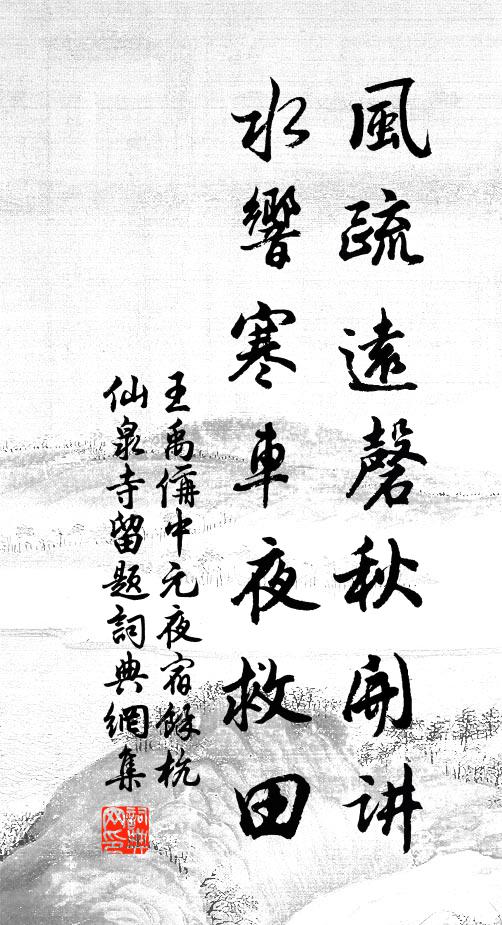 風疏遠磬秋開讲
水響寒車夜救田
王禹偁中元夜宿餘杭
仙泉寺留題詞典網集